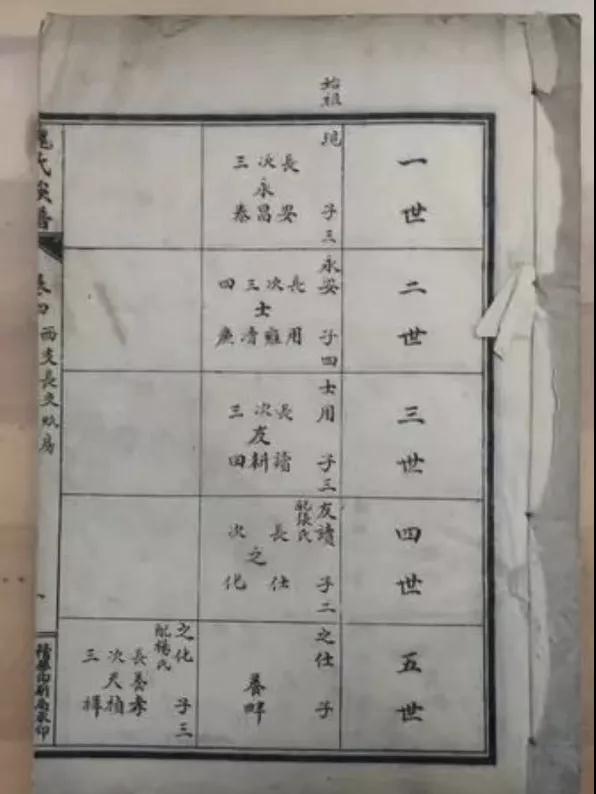 始祖
一世
子三
長次三
永
安昌泰
二世
永安 子四
長次三四
士
用雍清廉
三世
士用 子三
長次三
友
讀耕田
四世
友讀 子二
配張氏
長次
之
仕化
五世
之仕 子
養畔
之化 子三
配楊氏
長次三
養天
孝楨
氏族譜
卷四 西支長支 房
印刷局承印